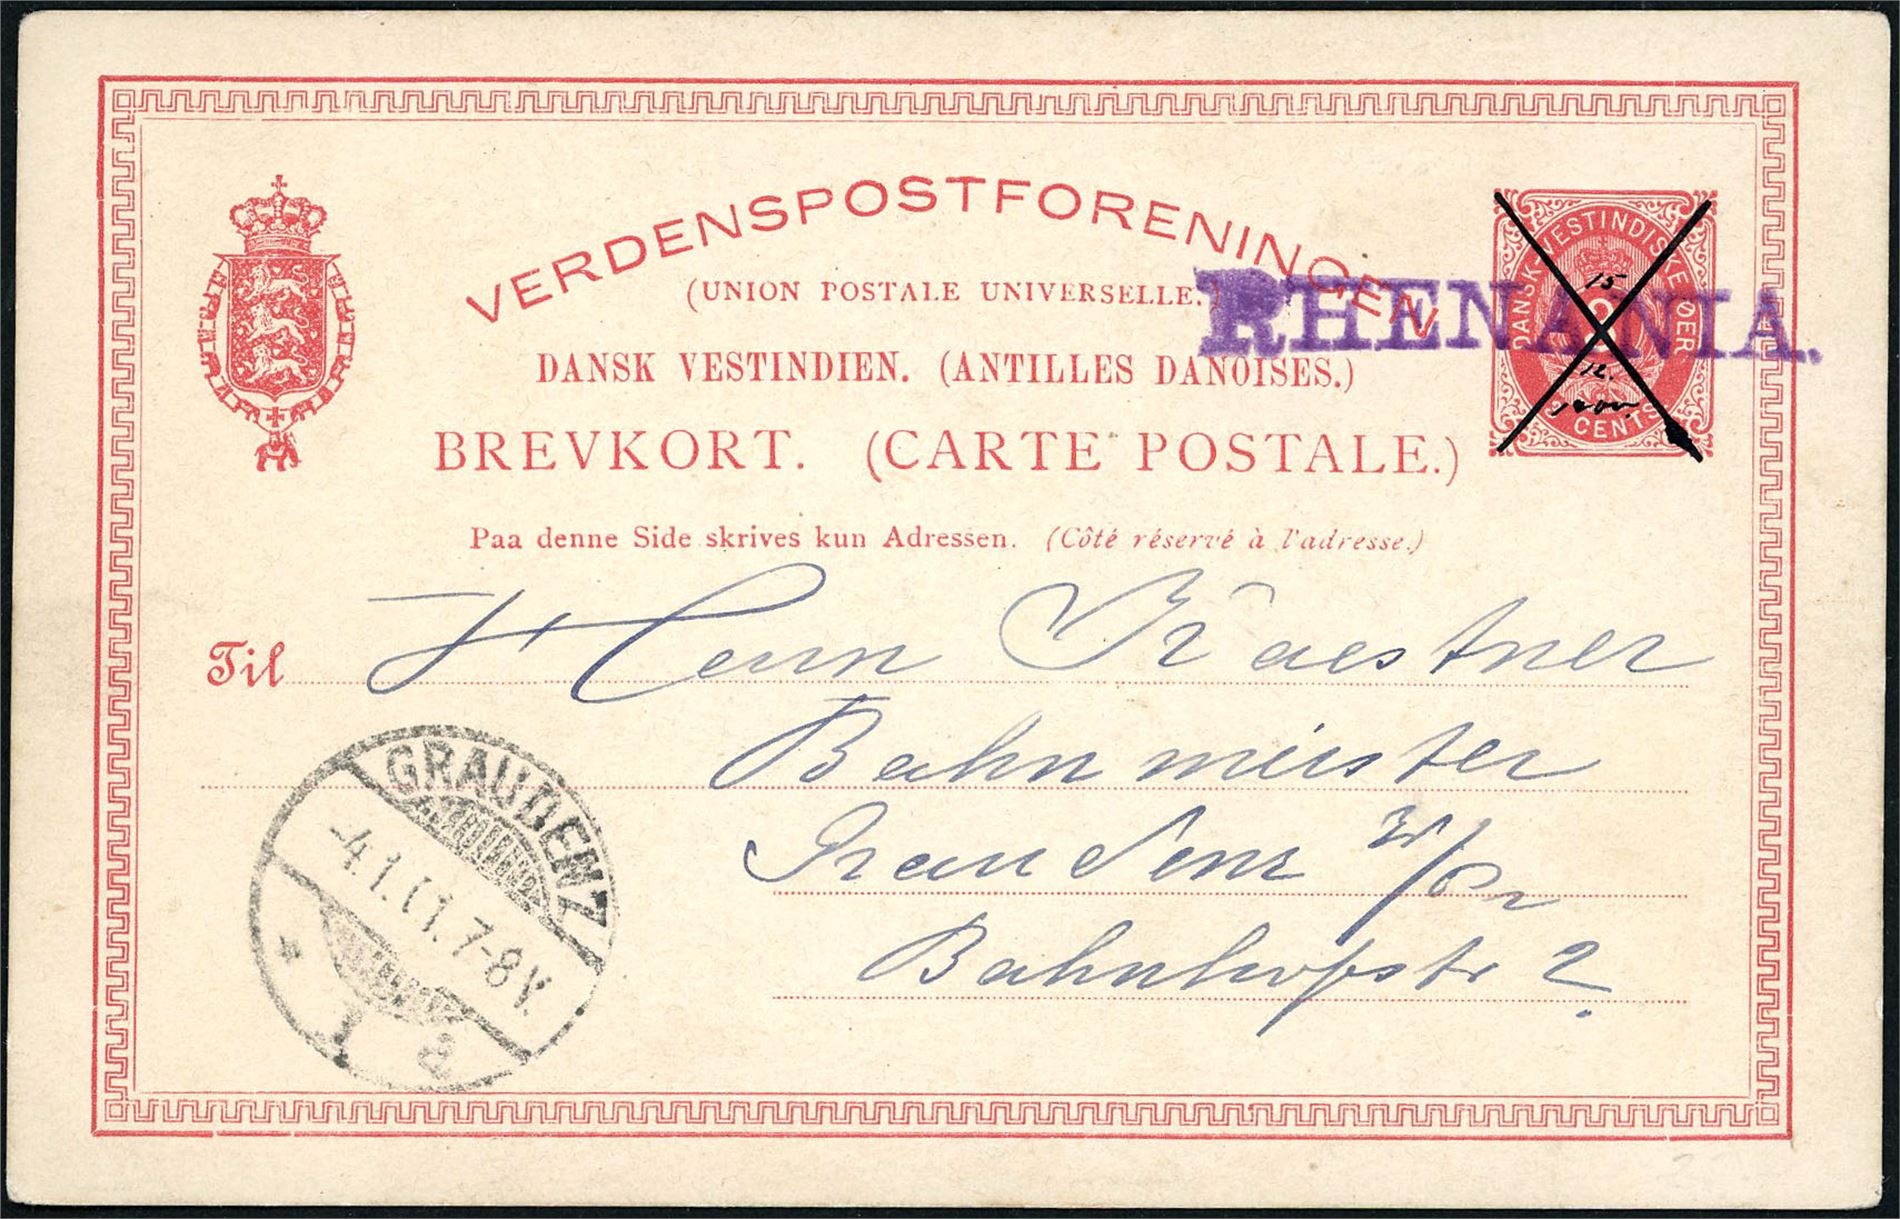 VERDENSPOSTFORENINGEN
(UNION POSTALE UNIVERSELLE.)
DANSK VESTINDIEN. (ANTILLES DANOISES.)
BREVKORT. (CARTE POSTALE.)
DANSK-VESTINDISKE ØER
15
12.
1900.
CENTS
RHENANIA.
Paa denne Side skrives kun Adressen. (Côté réservé à l'adresse.)
Til Herrn Kaestner
Bahnmeister
Graudenz W/Pr
Bahnhofstr 2.
GRAUDENZ
-4.1.01.7-8V.
* 1 a